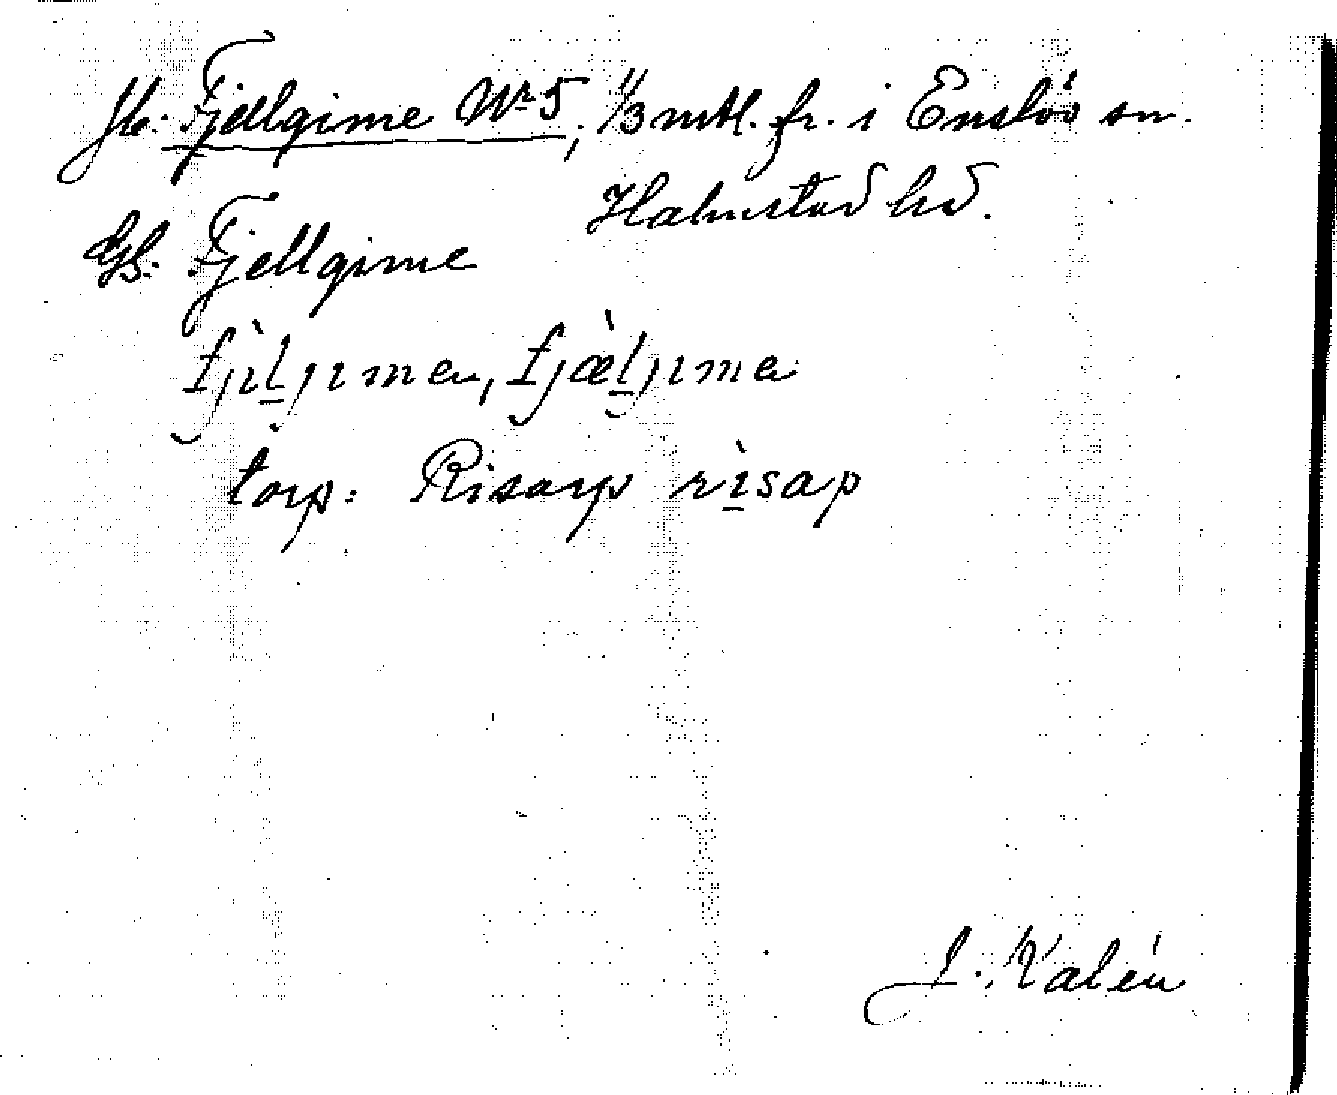 Jb. Fjellgime No 5, 1/3 mtl. fr. i Enslöv sn.
Halmstad hd.
Gs. Fjellgime
fjìl̲jıma, fjæ̀l̲jıma
torp: Risarp rı̲̀sap
J. Kalén